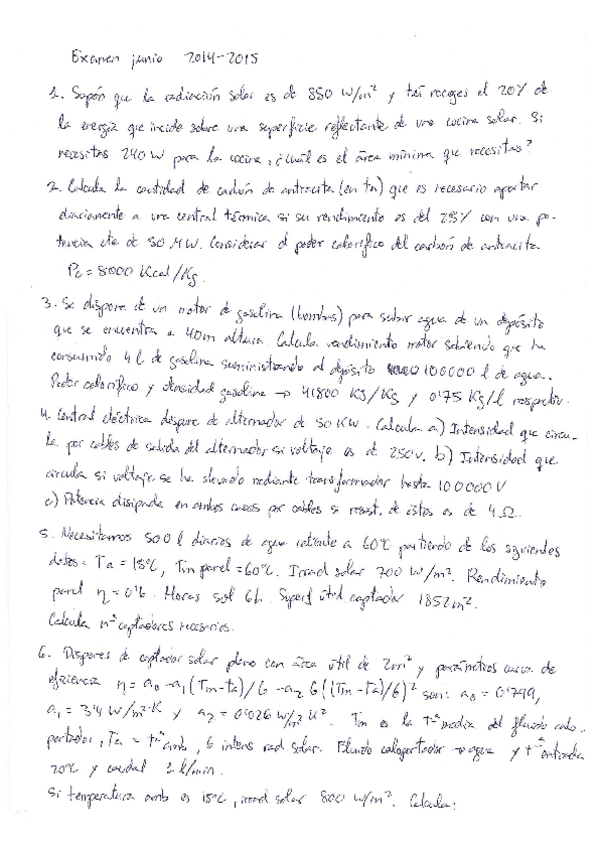 Examen junio 2014-2015
1. Supón que la radiación solar es de 850 W/m² y tú recoges el 20% de
la energía que incide sobre una superficie reflectante de una cocina solar. Si
necesitas 240 W para la cocina, ¿cuál es el área mínima que necesitas?
2. Calcula la cantidad de carbón de antracita (en tn) que es necesario aportar
diariamente a una central térmica si su rendimiento es del 25% con una po-
tencia cte de 50 MW. Considerar el poder calorífico del carbón de antracita
Pc = 8000 Kcal/Kg.
3. Se dispone de un motor de gasolina (bombas) para subir agua de un depósito
que se encuentra a 40m altura. Calcula rendimiento motor sabiendo que ha
consumido 4 l de gasolina suministrando al depósito 100000 l de agua.
Poder calorífico y densidad gasolina → 41800 KJ/Kg y 0'75 Kg/l respectiv.
4. Central eléctrica dispone de alternador de 50 KW. Calcula a) Intensidad que circu-
la por cables de salida del alternador si voltaje es de 250V. b) Intensidad que
circula si voltaje se ha elevado mediante transformador hasta 100000V
c) Potencia disipada en ambos casos por cables si resist. de éstos es de 4 Ω.
5. Necesitamos 500 l diarios de agua caliente a 60ºC partiendo de los siguientes
datos: Ta = 18ºC, Tm panel = 60ºC. Irrad solar 700 W/m². Rendimiento
panel η = 0'6. Horas sol 6h. Superf útil captador 1852 m².
Calcula nº captadores necesarios.
6. Dispones de captador solar plano con área útil de 2m² y parámetros curva de
eficiencia η = a₀ - a₁(Tm-ta)/G - a₂ G((Tm-Ta)/G)² son: a₀ = 0'799,
a₁ = 3'4 W/m²·K y a₂ = 0'026 W/m²K². Tm es la tª media del fluido calo-
portador, Ta = tª amb, G intens rad solar. Fluido caloportador → agua y tª entrada
20ºC y caudal 1 l/min.
Si temperatura amb es 15ºC, irrad solar 800 W/m². Calcula: